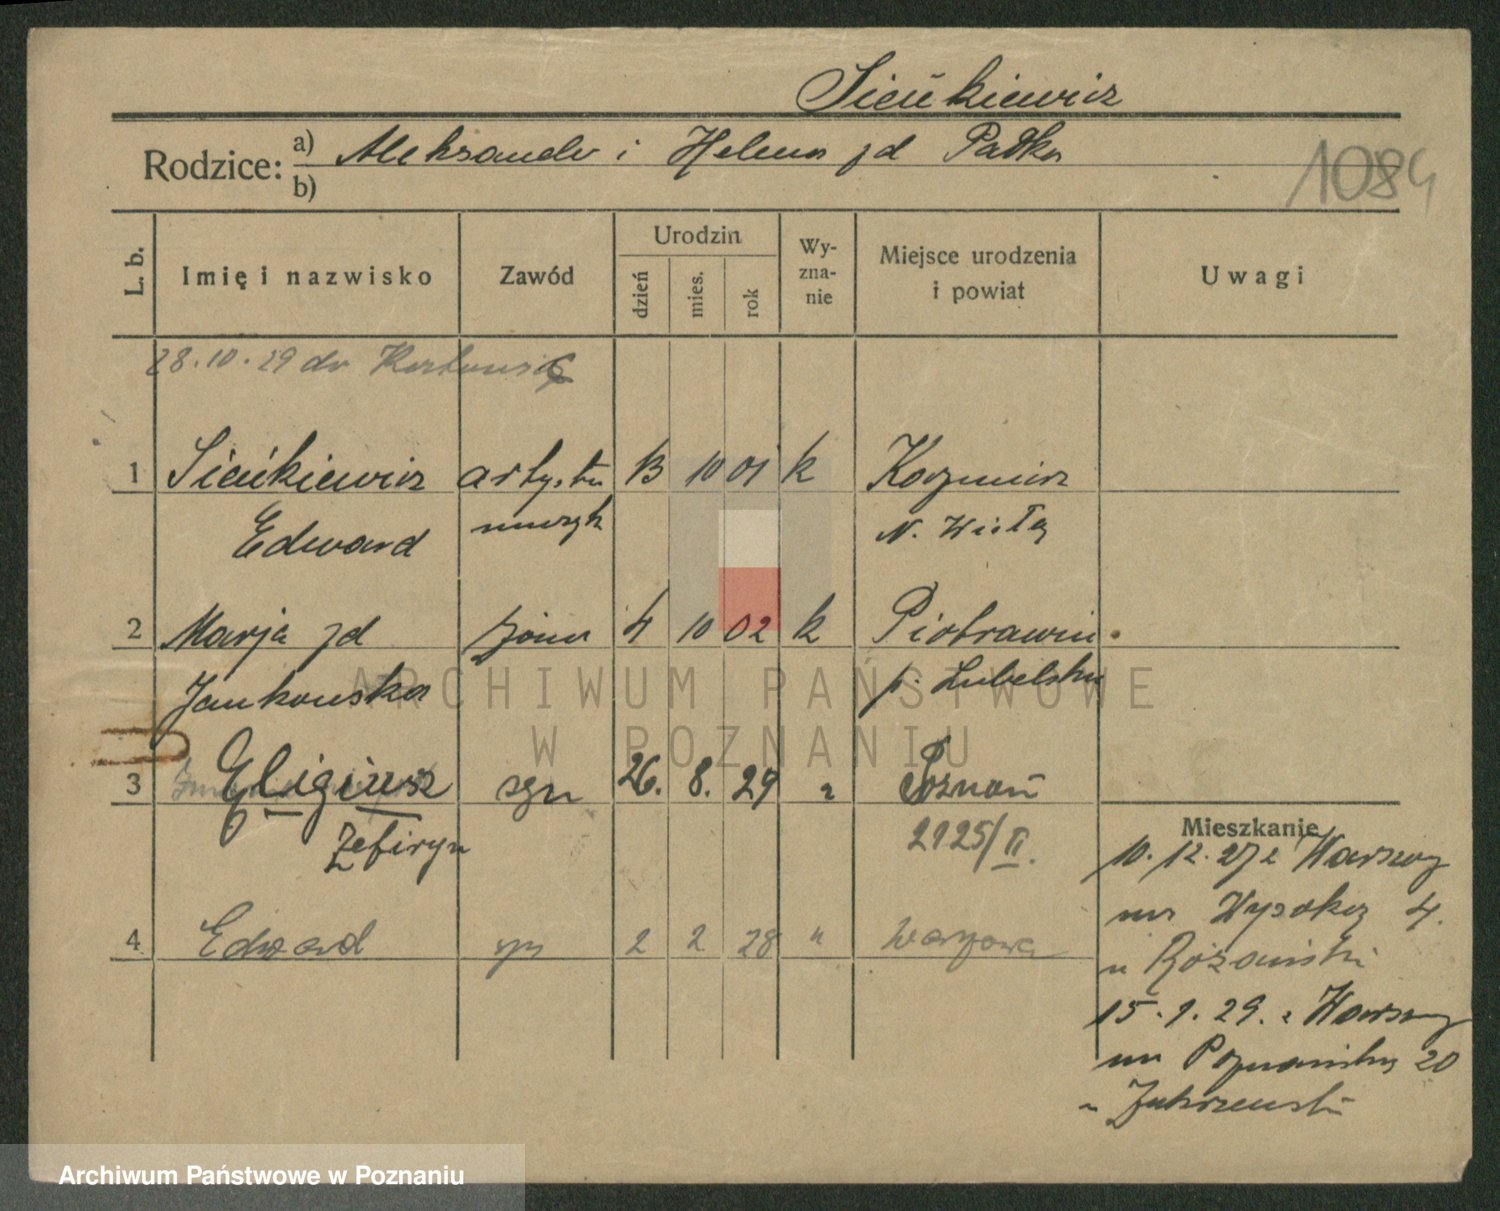 Sieńkiewicz
Rodzice: a) Aleksander i Helena zd Pałka
b)
1084
L. b.
Imię i nazwisko
Zawód
Urodzin
dzień
mies.
rok
Wy-
zna-
nie
Miejsce urodzenia
i powiat
Uwagi
28.10.29 do
1 Sieńkiewicz artysta 13 10 01 k Kazimierz
Edward muzyk N. Wisłą
2 Marja zd żona 4 10 02 k Piotrawin
Jankowska p. Lubelska
3 Eligiusz syn 26. 8. 29 " Poznań
Zefiryn 2125/II.
4 Edward syn 2 2 28 " Warszawa
Mieszkanie
10.12.27 z Warszawy
na Wysoką 4.
u Różański
15.1.29. z Warszawy
na Poznańską 20
u Zakrzewski
ARCHIWUM PAŃSTWOWE
W POZNANIU
Archiwum Państwowe w Poznaniu